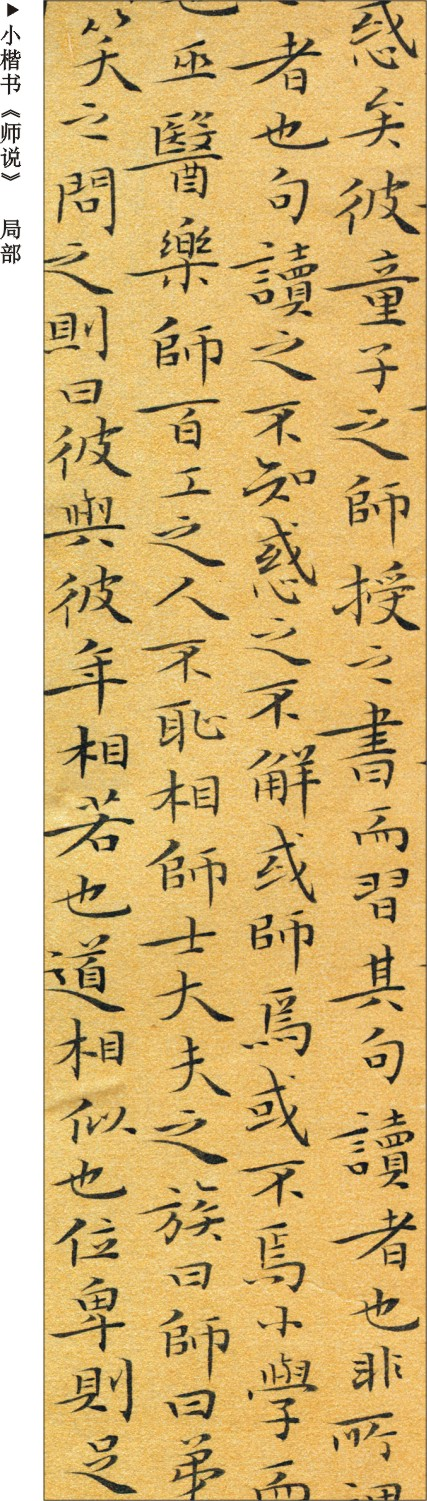 惑矣彼童子之師授之書而習其句讀者也非所
者也句讀之不知惑之不解或師焉或不焉小學而
也巫醫樂師百工之人不恥相師士大夫之族曰師曰弟
笑之問之則曰彼與彼年相若也道相似也位卑則足
▶小楷书《师说》 局部